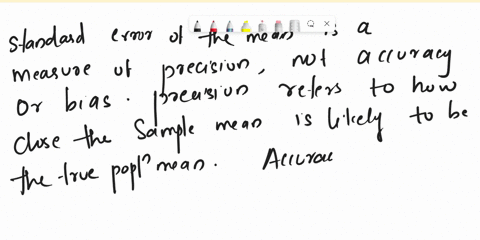 standard error of the mean is a
measure of precision, not accuracy
or bias. precision refers to how
close the sample mean is likely to be
the true popln mean. Accurac